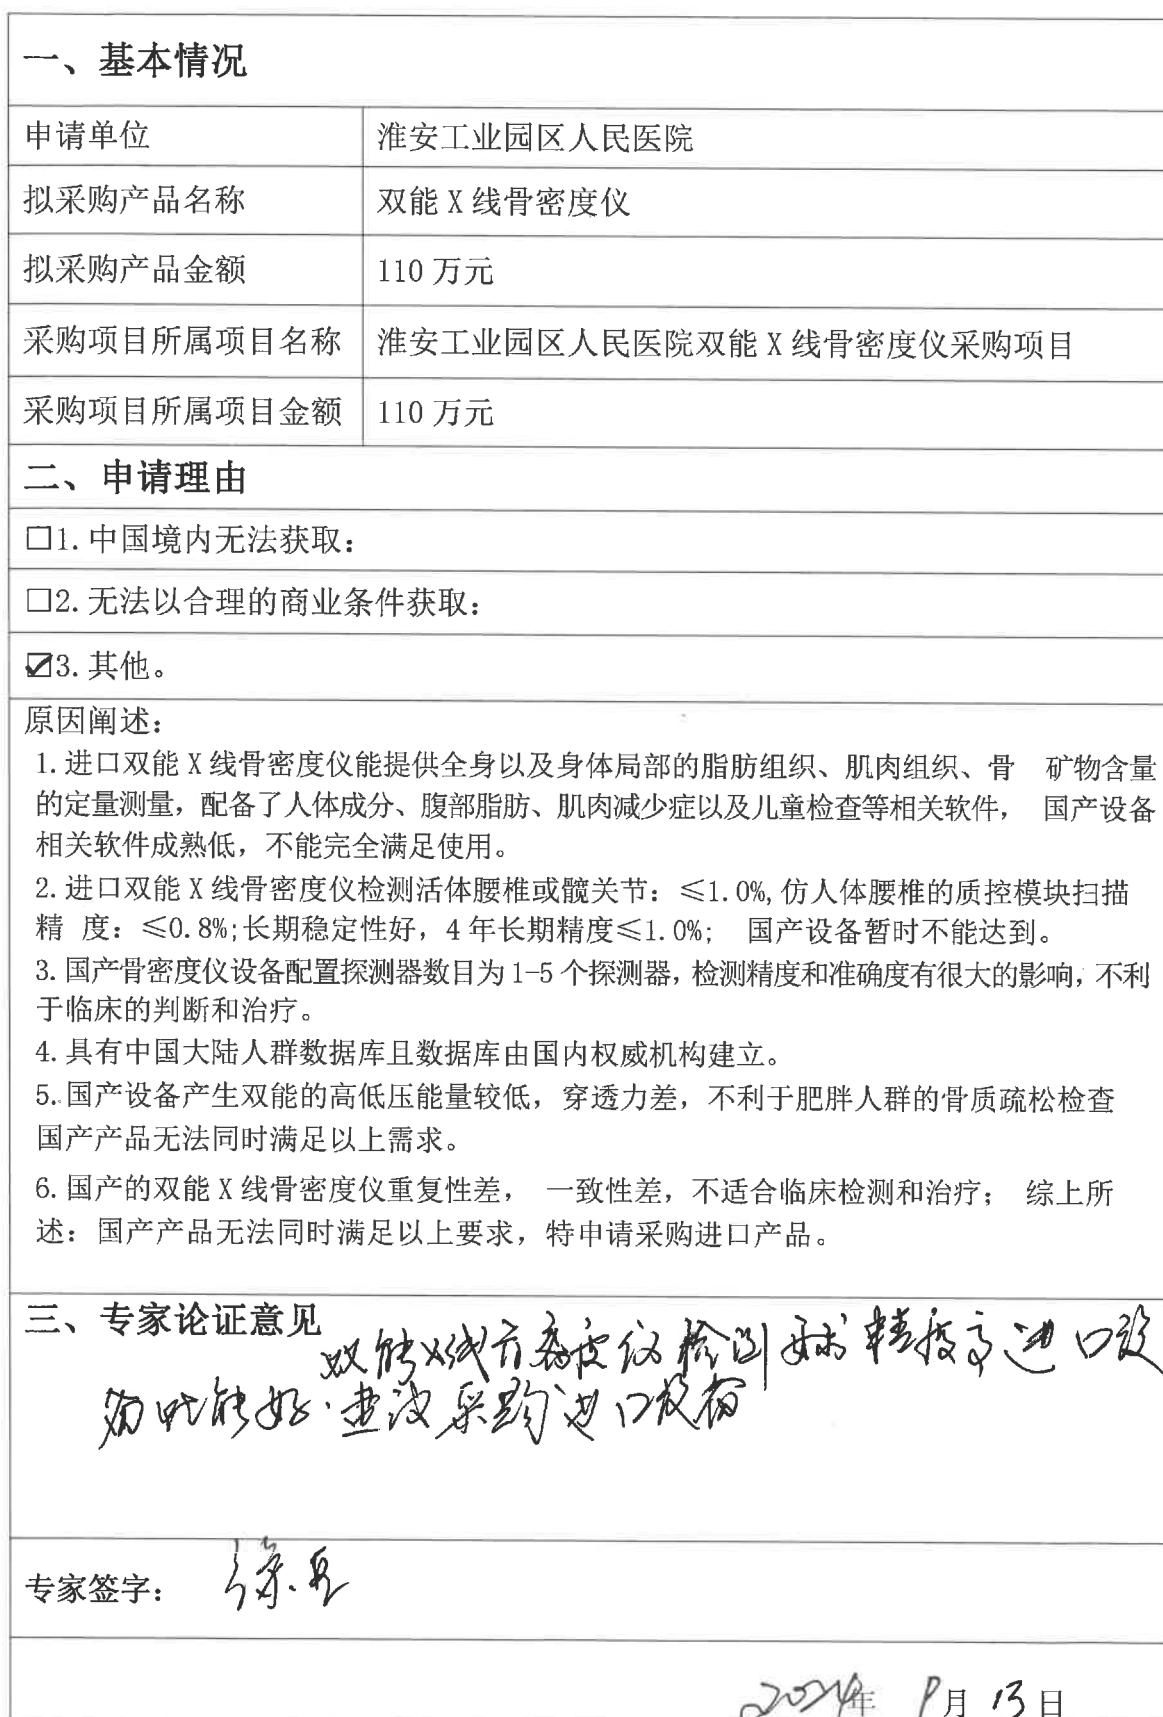 一、基本情况
申请单位 淮安工业园区人民医院
拟采购产品名称 双能 X 线骨密度仪
拟采购产品金额 110 万元
采购项目所属项目名称 淮安工业园区人民医院双能 X 线骨密度仪采购项目
采购项目所属项目金额 110 万元
二、申请理由
☐1.中国境内无法获取：
☐2.无法以合理的商业条件获取：
☑3.其他。
原因阐述：
1.进口双能 X 线骨密度仪能提供全身以及身体局部的脂肪组织、肌肉组织、骨 矿物含量
的定量测量，配备了人体成分、腹部脂肪、肌肉减少症以及儿童检查等相关软件， 国产设备
相关软件成熟低，不能完全满足使用。
2.进口双能 X 线骨密度仪检测活体腰椎或髋关节：≤1.0%,仿人体腰椎的质控模块扫描
精 度：≤0.8%;长期稳定性好，4 年长期精度≤1.0%; 国产设备暂时不能达到。
3.国产骨密度仪设备配置探测器数目为 1-5 个探测器，检测精度和准确度有很大的影响，不利
于临床的判断和治疗。
4.具有中国大陆人群数据库且数据库由国内权威机构建立。
5.国产设备产生双能的高低压能量较低，穿透力差，不利于肥胖人群的骨质疏松检查
国产产品无法同时满足以上需求。
6.国产的双能 X 线骨密度仪重复性差， 一致性差，不适合临床检测和治疗； 综上所
述：国产产品无法同时满足以上要求，特申请采购进口产品。
三、专家论证意见
双能X线骨密度仪检测要求精度高进口设
备性能好.建议采购进口设备
专家签字：
2024年 9月 13日